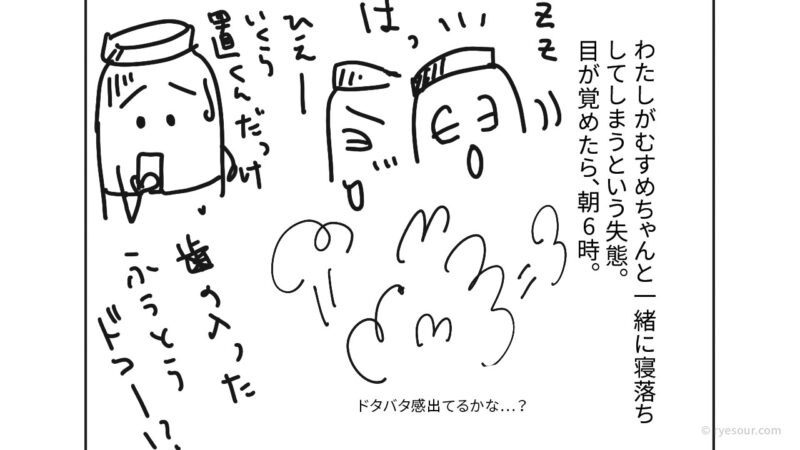 わたしがむすめちゃんと一緒に寝落ち
してしまうという失態。
目が覚めたら、朝6時。
zz
はっ...
ひえー
いくら
置くんだっけ
歯の入った
ふうとう
ドコー!?
ドタバタ感出てるかな…？
© ryesour.com